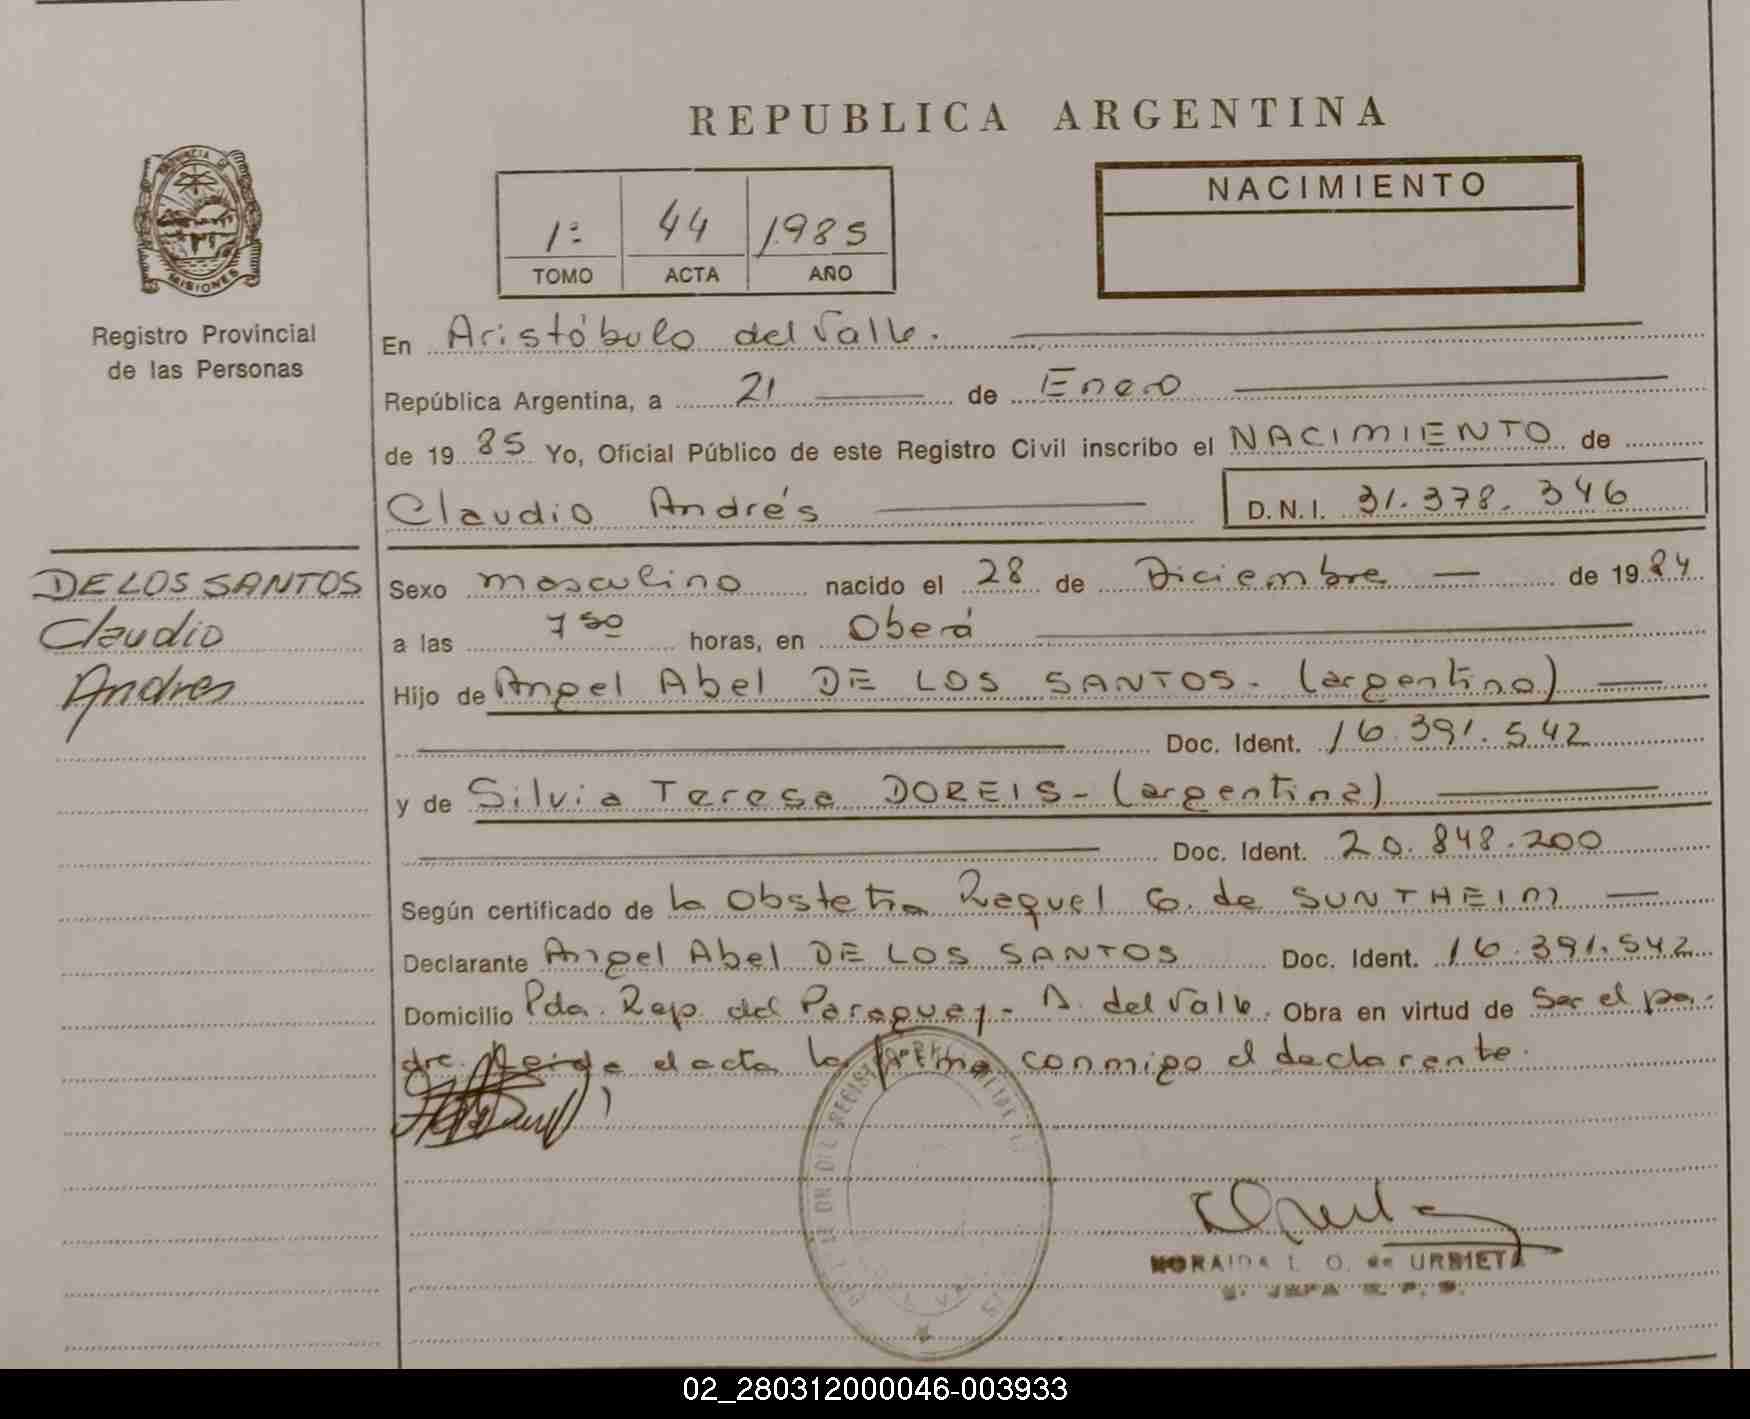 REPUBLICA ARGENTINA
PROVINCIA DE
MISIONES
Registro Provincial
de las Personas
1º 44 1985
TOMO ACTA AÑO
NACIMIENTO
En Aristóbulo del Valle.
República Argentina, a 21 de Enero
de 1985 Yo, Oficial Público de este Registro Civil inscribo el NACIMIENTO de
Claudio Andrés D.N.I. 31.378.346
DE LOS SANTOS
Claudio
Andres
Sexo masculino nacido el 28 de Diciembre — de 1984
a las 7 50 horas, en Oberá
Hijo de Angel Abel DE LOS SANTOS - (argentino)
Doc. Ident. 16.391.542
y de Silvia Teresa DOREIS - (argentina)
Doc. Ident. 20.848.200
Según certificado de la Obstetra Raquel G. de SUNTHEIM
Declarante Angel Abel DE LOS SANTOS Doc. Ident. 16.391.542
Domicilio Pda. Rep. del Paraguay - A. del Valle. Obra en virtud de ser el pa-
dre. Leída el acta la firma conmigo el declarante.
NORAIDA L. O. de URBIETA
02_280312000046-003933